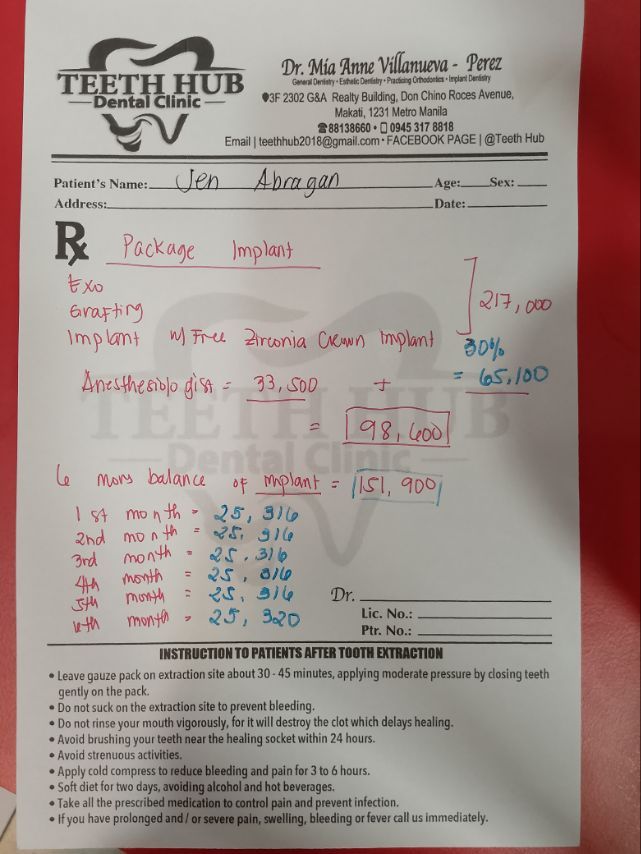 TEETH HUB
Dental Clinic
Dr. Mia Anne Villanueva - Perez
General Dentistry • Esthetic Dentistry • Practicing Orthodontics • Implant Dentistry
3F 2302 G&A Realty Building, Don Chino Roces Avenue,
Makati, 1231 Metro Manila
88138660 • 0945 317 8818
Email | teethhub2018@gmail.com • FACEBOOK PAGE | @Teeth Hub
Patient's Name: Jen Abragan Age: Sex:
Address: Date:
Rx Package Implant
Exo
Grafting
217,000
Implant w/ Free Zirconia Crown Implant
30%
Anesthesiologist = 33,500 + = 65,100
= 98,600
TEETH HUB
Dental Clinic
6 mons balance of implant = 151,900
1st month = 25,316
2nd month = 25,316
3rd month = 25,316
4th month = 25,316
5th month = 25,316
6th month = 25,320
Dr.
Lic. No.:
Ptr. No.:
INSTRUCTION TO PATIENTS AFTER TOOTH EXTRACTION
• Leave gauze pack on extraction site about 30 - 45 minutes, applying moderate pressure by closing teeth
gently on the pack.
• Do not suck on the extraction site to prevent bleeding.
• Do not rinse your mouth vigorously, for it will destroy the clot which delays healing.
• Avoid brushing your teeth near the healing socket within 24 hours.
• Avoid strenuous activities.
• Apply cold compress to reduce bleeding and pain for 3 to 6 hours.
• Soft diet for two days, avoiding alcohol and hot beverages.
• Take all the prescribed medication to control pain and prevent infection.
• If you have prolonged and / or severe pain, swelling, bleeding or fever call us immediately.